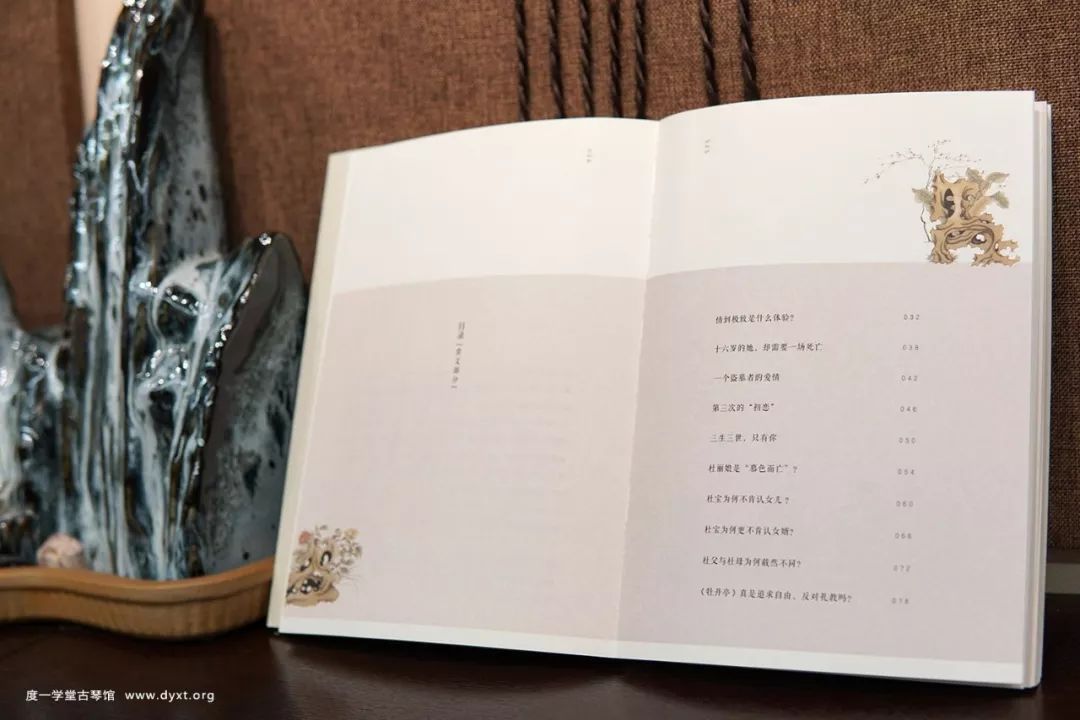 目录
情到极致是什么体验? 032
十六岁的她，却需要一场死亡 038
一个盗墓者的爱情 042
第三次的“初恋” 046
三生三世，只有你 050
杜丽娘是“慕色而亡”? 054
杜宝为何不肯认女儿? 060
杜宝为何更不肯认女婿? 066
杜父与杜母为何截然不同? 072
《牡丹亭》真是追求自由、反对礼教吗? 078
度一学堂古琴馆 www.dyxt.org